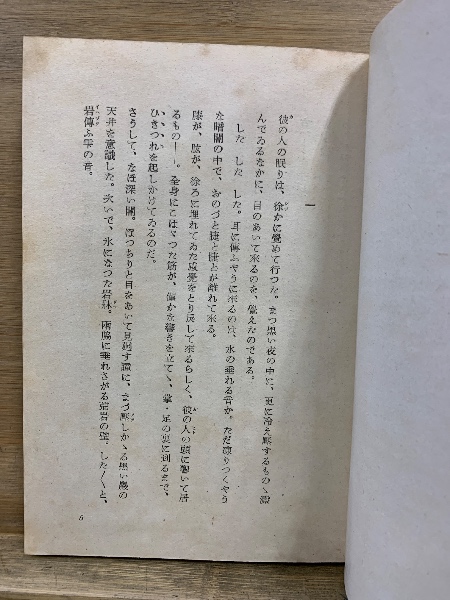 一
彼の人の眠りは、徐かに覺めて行つた。まつ黒い夜の中に、更に冷え壓するものゝ澱
んでゐるなかに、目のあいて來るのを、覺えたのである。
した した した。耳に傳ふやうに來るのは、水の垂れる音か。ただ凍りつくやう
な暗闇の中で、おのづと睫と睫とが離れて來る。
膝が、肱が、徐ろに埋れてゐた感覺をとり戻して來るらしく、彼の人の頭に響いて居
るもの――。全身にこはゞつた筋が、僅かな響きを立てゝ、掌・足の裏に到るまで、
ひきつれを起しかけてゐるのだ。
さうして、なほ深い闇。ぽつちりと目をあいて見廻す瞳に、まづ壓しかゝる黒い巖の
天井を意識した。次いで、氷になつた岩牀。兩脇に垂れさがる荒岩の壁。した／＼と、
岩傳ふ雫の音。
5